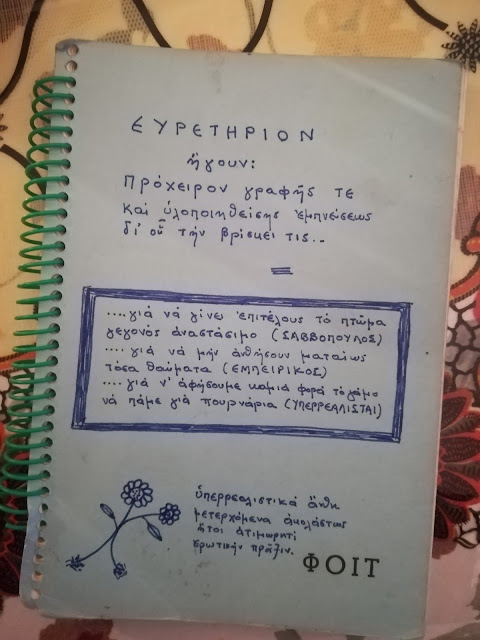 ΕΥΡΕΤΗΡΙΟΝ
ἤγουν:
Πρόχειρον γραφῆς τε
καί ὑλοποιηθείσης ἐμπνεύσεως
δι' οὗ τήν βρίσκει τις..
....γιά νά γίνει ἐπιτέλους τό πτῶμα
γεγονός ἀναστάσιμο (ΣΑΒΒΟΠΟΥΛΟΣ)
.... γιά νά μήν ἀνθήσουν ματαίως
τόσα θαύματα (ΕΜΠΕΙΡΙΚΟΣ)
.... γιά ν' ἀφήσουμε καμιά φορά τό γάμο
νά πᾶμε γιά πουρνάρια (ΥΠΕΡΡΕΑΛΙΣΤΑΙ)
ὑπερρεαλιστικά ἄνθη
μετερχόμενα ἀκολάστως
ἤτοι ἀτιμωρητί
ἐρωτικήν πρᾶξιν.
ΦΟΙΤ